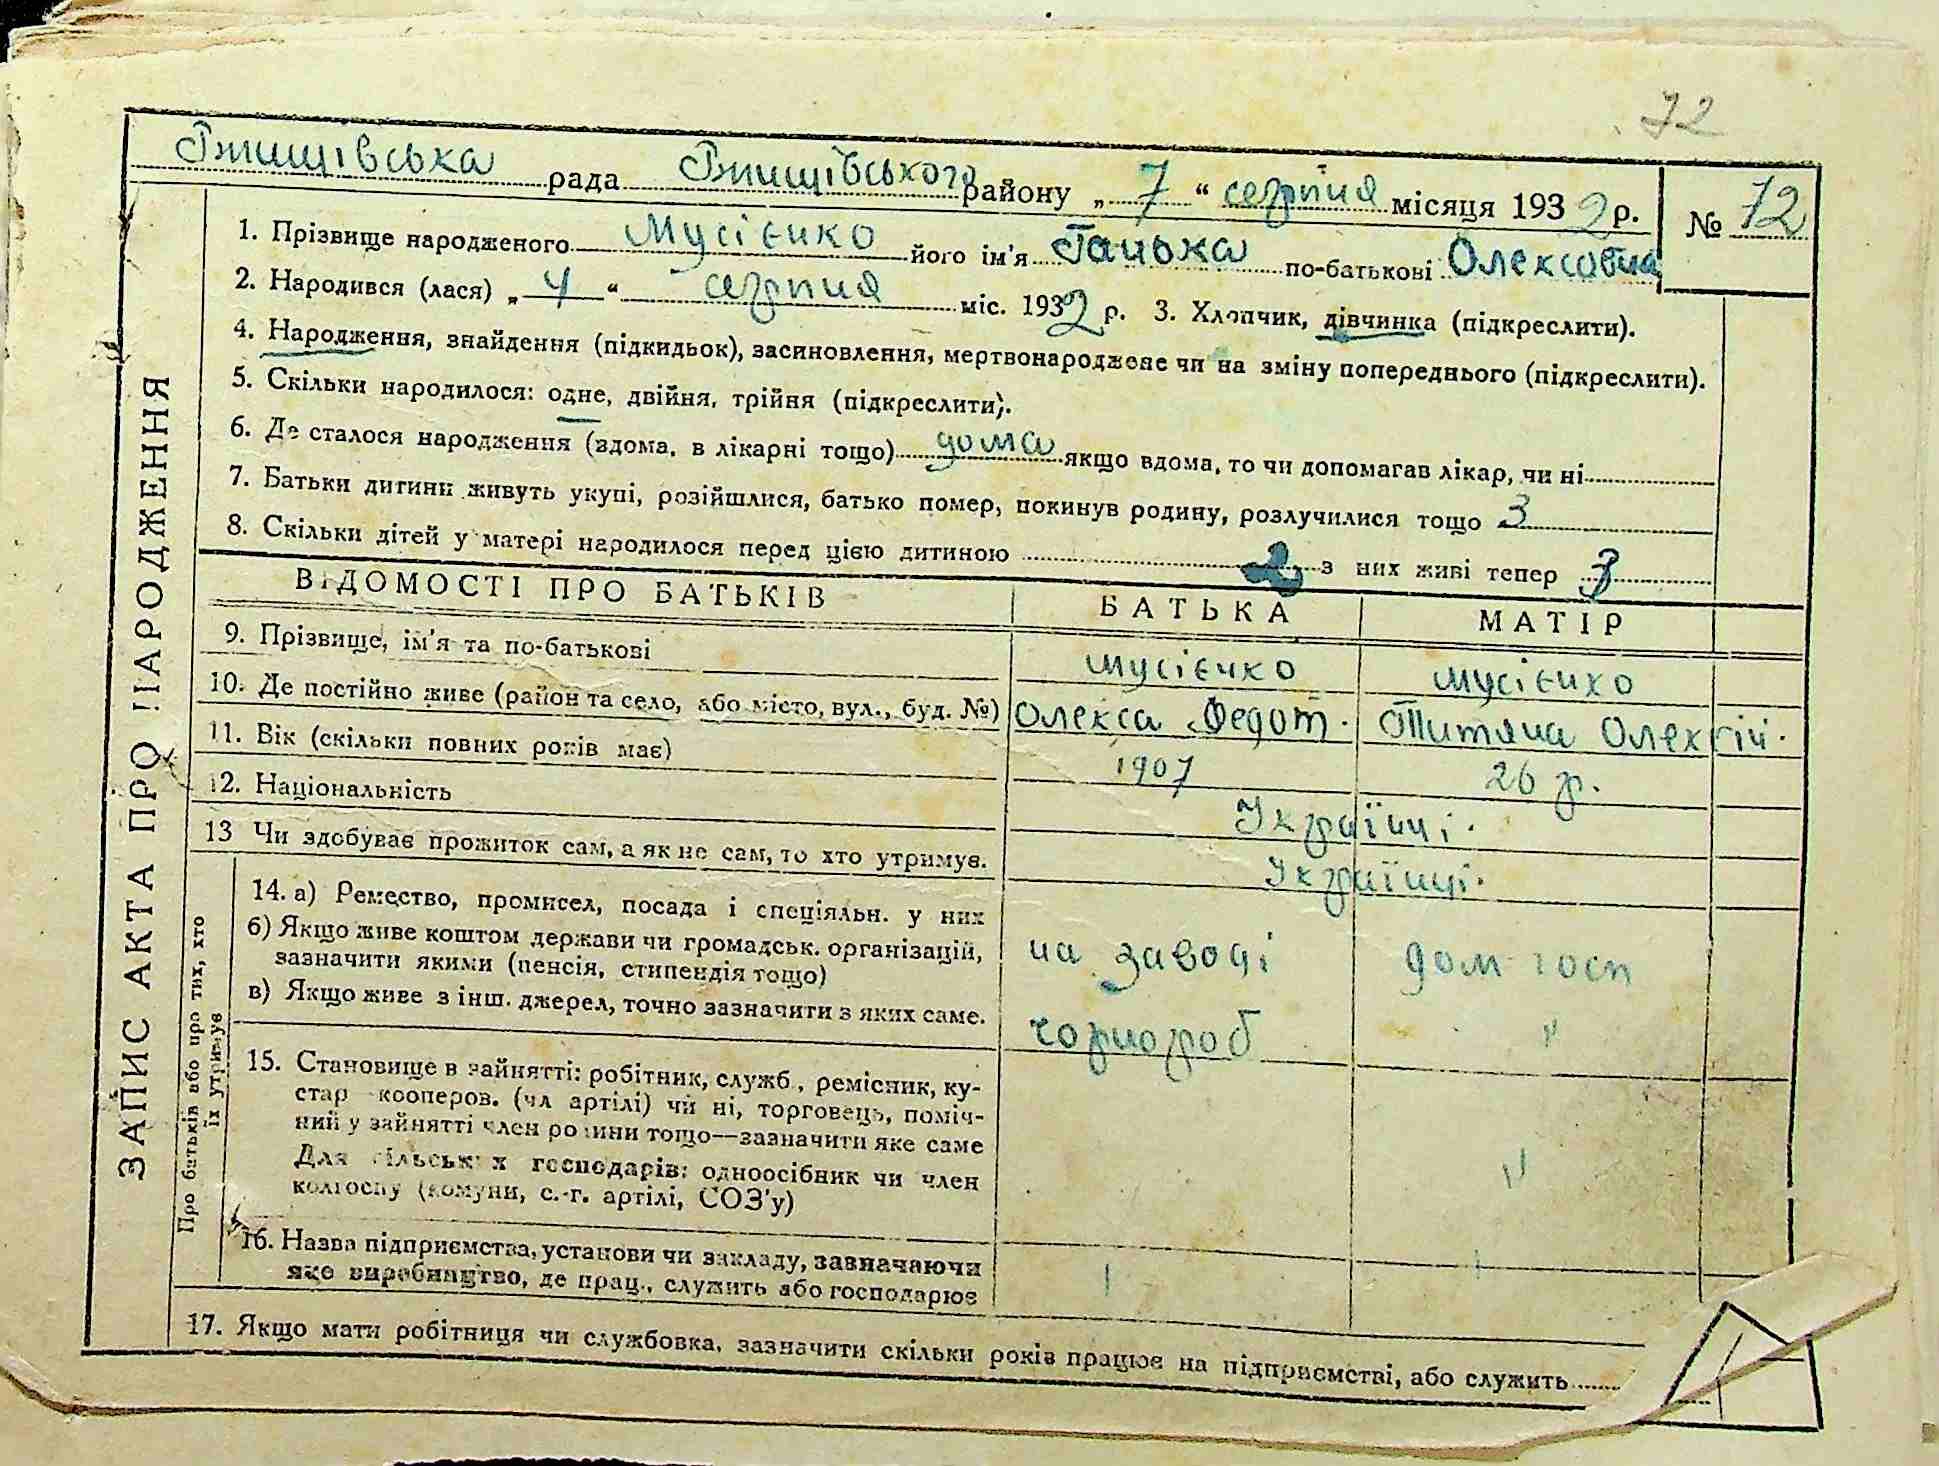 72
Ржищівська рада Ржищівського району „7“ серпня місяця 1932 р. № 72
1. Прізвище народженого Мусієнко його ім'я Ганька по-батькові Олексовна
2. Народився (лася) „4“ серпня міс. 1932 р. 3. Хлопчик, дівчинка (підкреслити).
4. Народження, знайдення (підкидьок), засиновлення, мертвонароджене чи на зміну попереднього (підкреслити).
5. Скільки народилося: одне, двійня, трійня (підкреслити).
6. Де сталося народження (вдома, в лікарні тощо) дома якщо вдома, то чи допомагав лікар, чи ні
7. Батьки дитини живуть укупі, розійшлися, батько помер, покинув родину, розлучилися тощо 3
8. Скільки дітей у матері народилося перед цією дитиною 2 з них живі тепер 3
ЗАПИС АКТА ПРО НАРОДЖЕННЯ
ВІДОМОСТІ ПРО БАТЬКІВ БАТЬКА МАТІР
9. Прізвище, ім'я та по-батькові Мусієнко Мусієнко
10. Де постійно живе (район та село, або місто, вул., буд. №) Олекса Федот. Титяна Олексгій.
11. Вік (скільки повних років має) 1907 26 р.
12. Національність Українці.
13 Чи здобуває прожиток сам, а як не сам, то хто утримує. Українці.
Про батьків або про тих, хто їх утримує
14. а) Ремество, промисел, посада і спеціяльн. у них
б) Якщо живе коштом держави чи громадськ. організацій, на заводі дом госп
зазначити якими (пенсія, стипендія тощо)
в) Якщо живе з інш. джерел, точно зазначити з яких саме. чорнороб "
15. Становище в зайнятті: робітник, служб., ремісник, ку-
стар кооперов. (чл артілі) чи ні, торговець, поміч-
ний у зайнятті член родини тощо—зазначити яке саме
Для сільських господарів: одноосібник чи член "
колгоспу (комуни, с.-г. артілі, СОЗ'у)
16. Назва підприємства, установи чи закладу, зазначаючи
яке виробництво, де прац., служить або господарює
17. Якщо мати робітниця чи службовка, зазначити скільки років працює на підприємстві, або служить